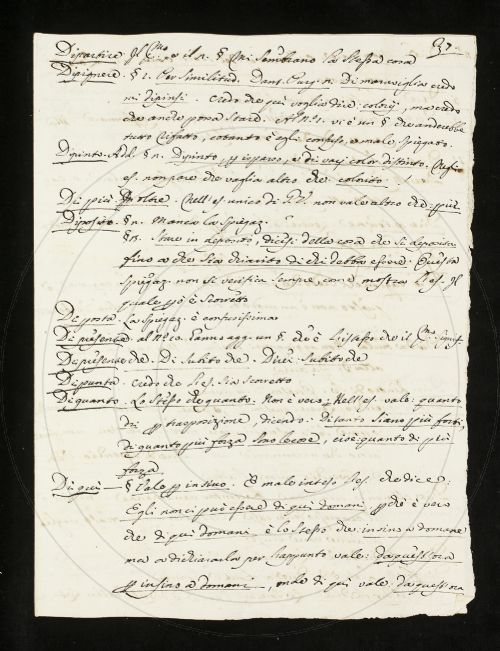 37
Dipartire Il Cmo e il n. § Mi sembrano la stessa cosa
Dipignere. § 2. Per similitud. Dant. Purg. n. Di maraviglia credo
mi dipinsi. Credo che qui voglia dire colorij, ma credo
che anche possa stare. Al N. 1. vi è un § che anderebbe
tutto rifatto, cotanto è egli confuso, e male spiegato.
Dipinto. Add. § n. Dipinto, p isparso, e di varj color distinto. Quegli
es. non pare che vaglia altro che colorito.
Di più Inoltre. Nell'es. unico di non vale altro che: più
Diposito. § n. Manca la spiegaz.
§ n. Stare in deposito, dicesi della cosa che si deposita
fino a che sia chiarito di chi debba essere. Questa
spiegaz. non si verifica sempre, come mostra l'es. Il
quale è scorretto
Di posta. La spiegaz. è confusissima
Di presente. al No. fanno agg. un § che è l'istesso che il Cmo
Di presente che. Di subito che. Dicesi subito che
Di punta. credo che l'es. sia scorretto
Di quanto. Lo stesso che quanto. Non è vero; Nell'es. vale: quanto
di p trasposizione, dicendo: Di tanto siano più forti,
di quanto più forza sono lecose, cioè: quanto di più
forza.
Di qui § Vale p insino. È male inteso l'es. che dice:
Egli non ci può essere di qui domani p che è vero
che di qui domani è lo stesso che insino a domane
ma a dichiararla per l'appunto vale: da quest'ora
p insino a domani, onde di qui vale: da quest'ora